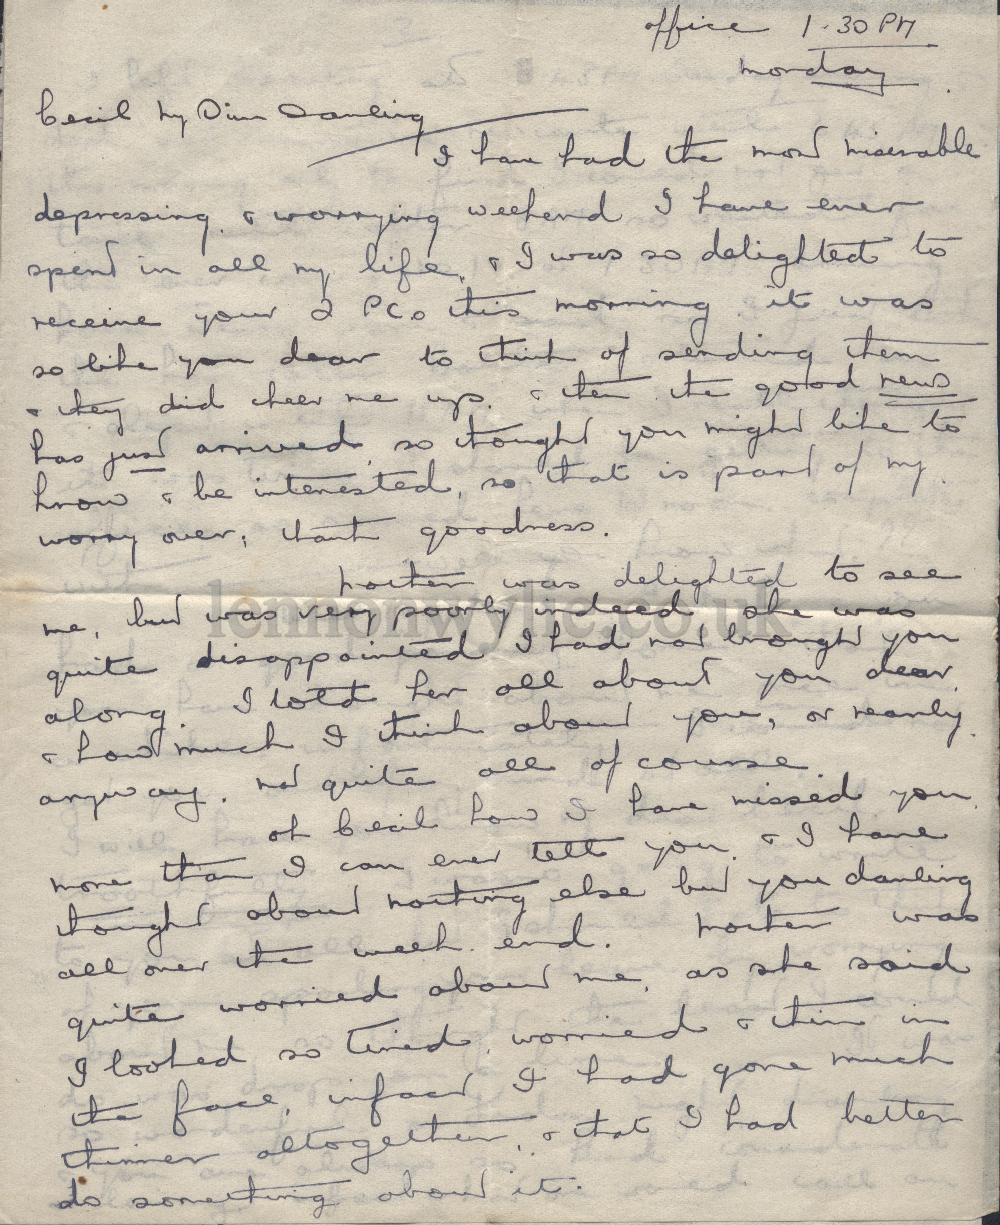 office 1.30 PM
Monday
Cecil My Own Darling
I have had the most miserable
depressing & worrying weekend I have ever
spent in all my life, & I was so delighted to
receive your 2 PCs this morning it was
so like you dear to think of sending them
& they did cheer me up. & then the good news
has just arrived, so thought you might like to
know & be interested, so that is part of my
worry over, thank goodness.
Mother was delighted to see
me, but was very poorly indeed she was
quite disappointed I had not brought you
along. I told her all about you dear,
& how much I think about you, or nearly
anyway. not quite all of course.
oh Cecil how I have missed you,
more than I can ever tell you. & I have
thought about nothing else but you darling
all over the week end. Mother was
quite worried about me, as she said
I looked so tired, worried & thin in
the face, infact I had gone much
thinner altogether, & that I had better
do something about it.
lennonwylie.co.uk